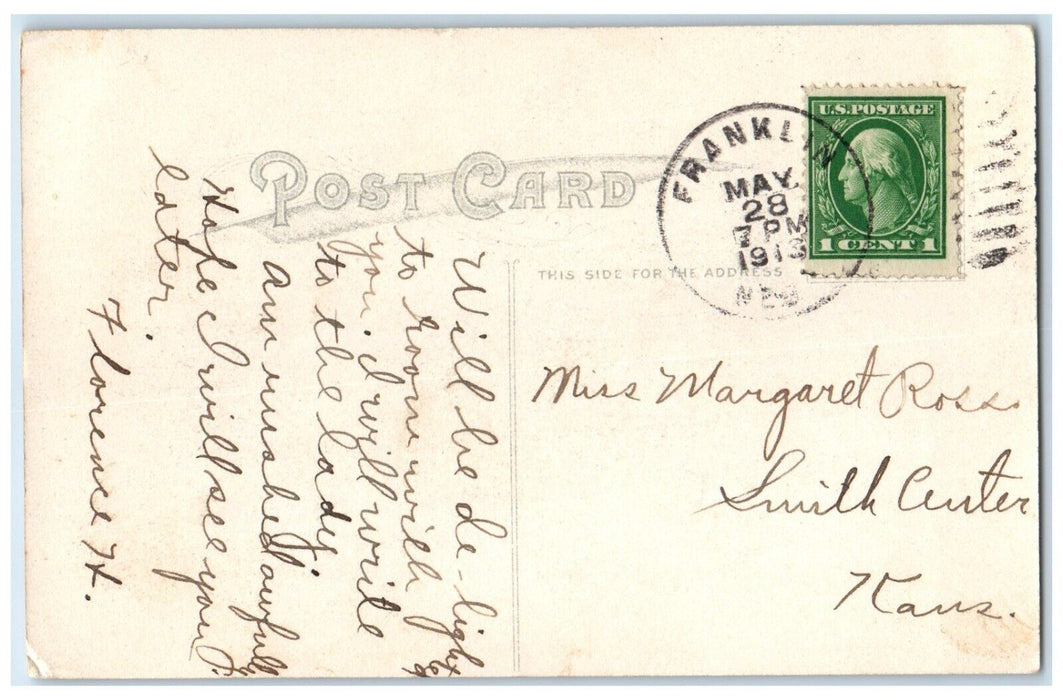 POST CARD
THIS SIDE FOR THE ADDRESS
FRANKLIN
MAY
28
PM
1913
NEB
U.S. POSTAGE
1 CENT 1
Miss Margaret Ross.
Smith Center
Kans.
Will be de-light
to room with
you. I will write
to the lady.
am rushed awfully
Hope I will see you
later.
Florence H.